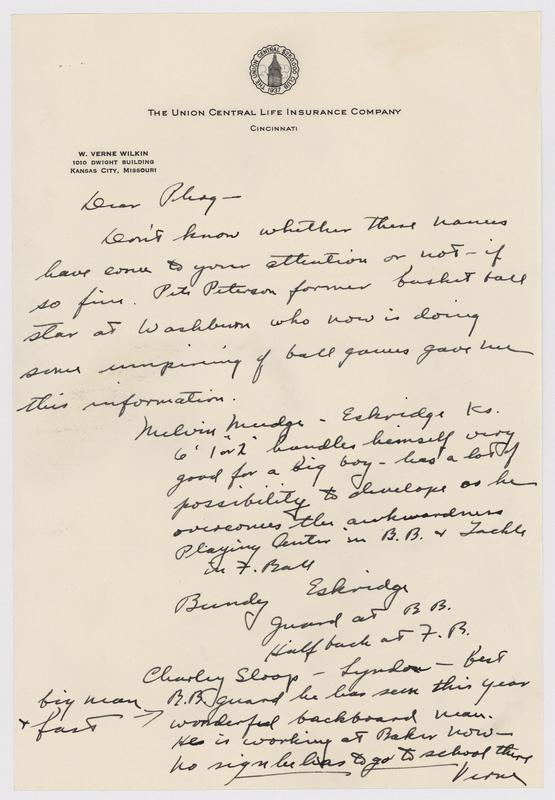 THE UNION CENTRAL $250,000 CLUB 1937
THE UNION CENTRAL LIFE INSURANCE COMPANY
CINCINNATI
W. VERNE WILKIN
1010 DWIGHT BUILDING
KANSAS CITY, MISSOURI
Dear Phog—
Don't know whether these names
have come to your attention or not – if
so fine. Pete Peterson former basket ball
star at Washburn who now is doing
some umpiring of ball games gave me
this information.
Melvin Mudge – Eskridge Ks.
6' 1 or 2" handles himself very
good for a big boy – has a lot of
possibility to develope as he
overcomes the awkwardness
Playing Center in B.B. & Tackle
in F. Ball
Bundy Eskridge
guard at B B.
Half back at F. B.
Charley Sloop – Lyndon – Best
B.B. guard he has seen this year
big man
& fast →
wonderful backboard man.
Hes is working at Baker now –
no sign he has to go to school there
Verne